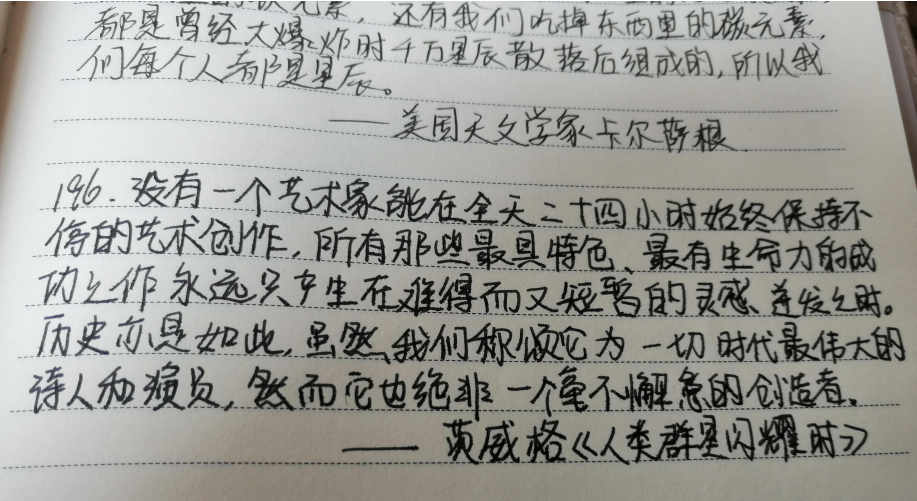 铁元素，还有我们吃掉东西里的碳元素，
都是曾经大爆炸时千万星辰散落后组成的，所以我
们每个人都是星辰。
——美国天文学家卡尔萨根
196.没有一个艺术家能在全天二十四小时始终保持不
停的艺术创作，所有那些最具特色、最有生命力的成
功之作永远只产生在难得而又短暂的灵感迸发之时。
历史亦是如此，虽然，我们称颂它为一切时代最伟大的
诗人和演员，然而它也绝非一个毫不懈怠的创造者。
——茨威格《人类群星闪耀时》